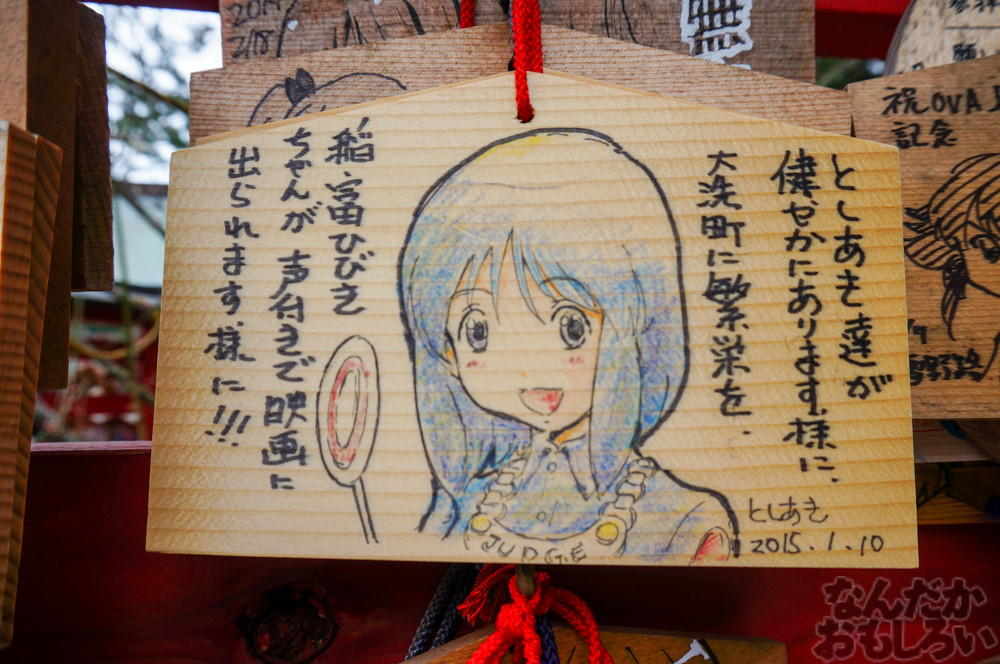 としあき達が
健やかにあります様に.
大洗町に繁栄を.
稲富ひびき
ちゃんが声付きで映画に
出られます様に!!!
JUDGE
としあき
2015.1.10
祝OVA
記念
2014
2/18
無
願い
なんだか
おもしろい